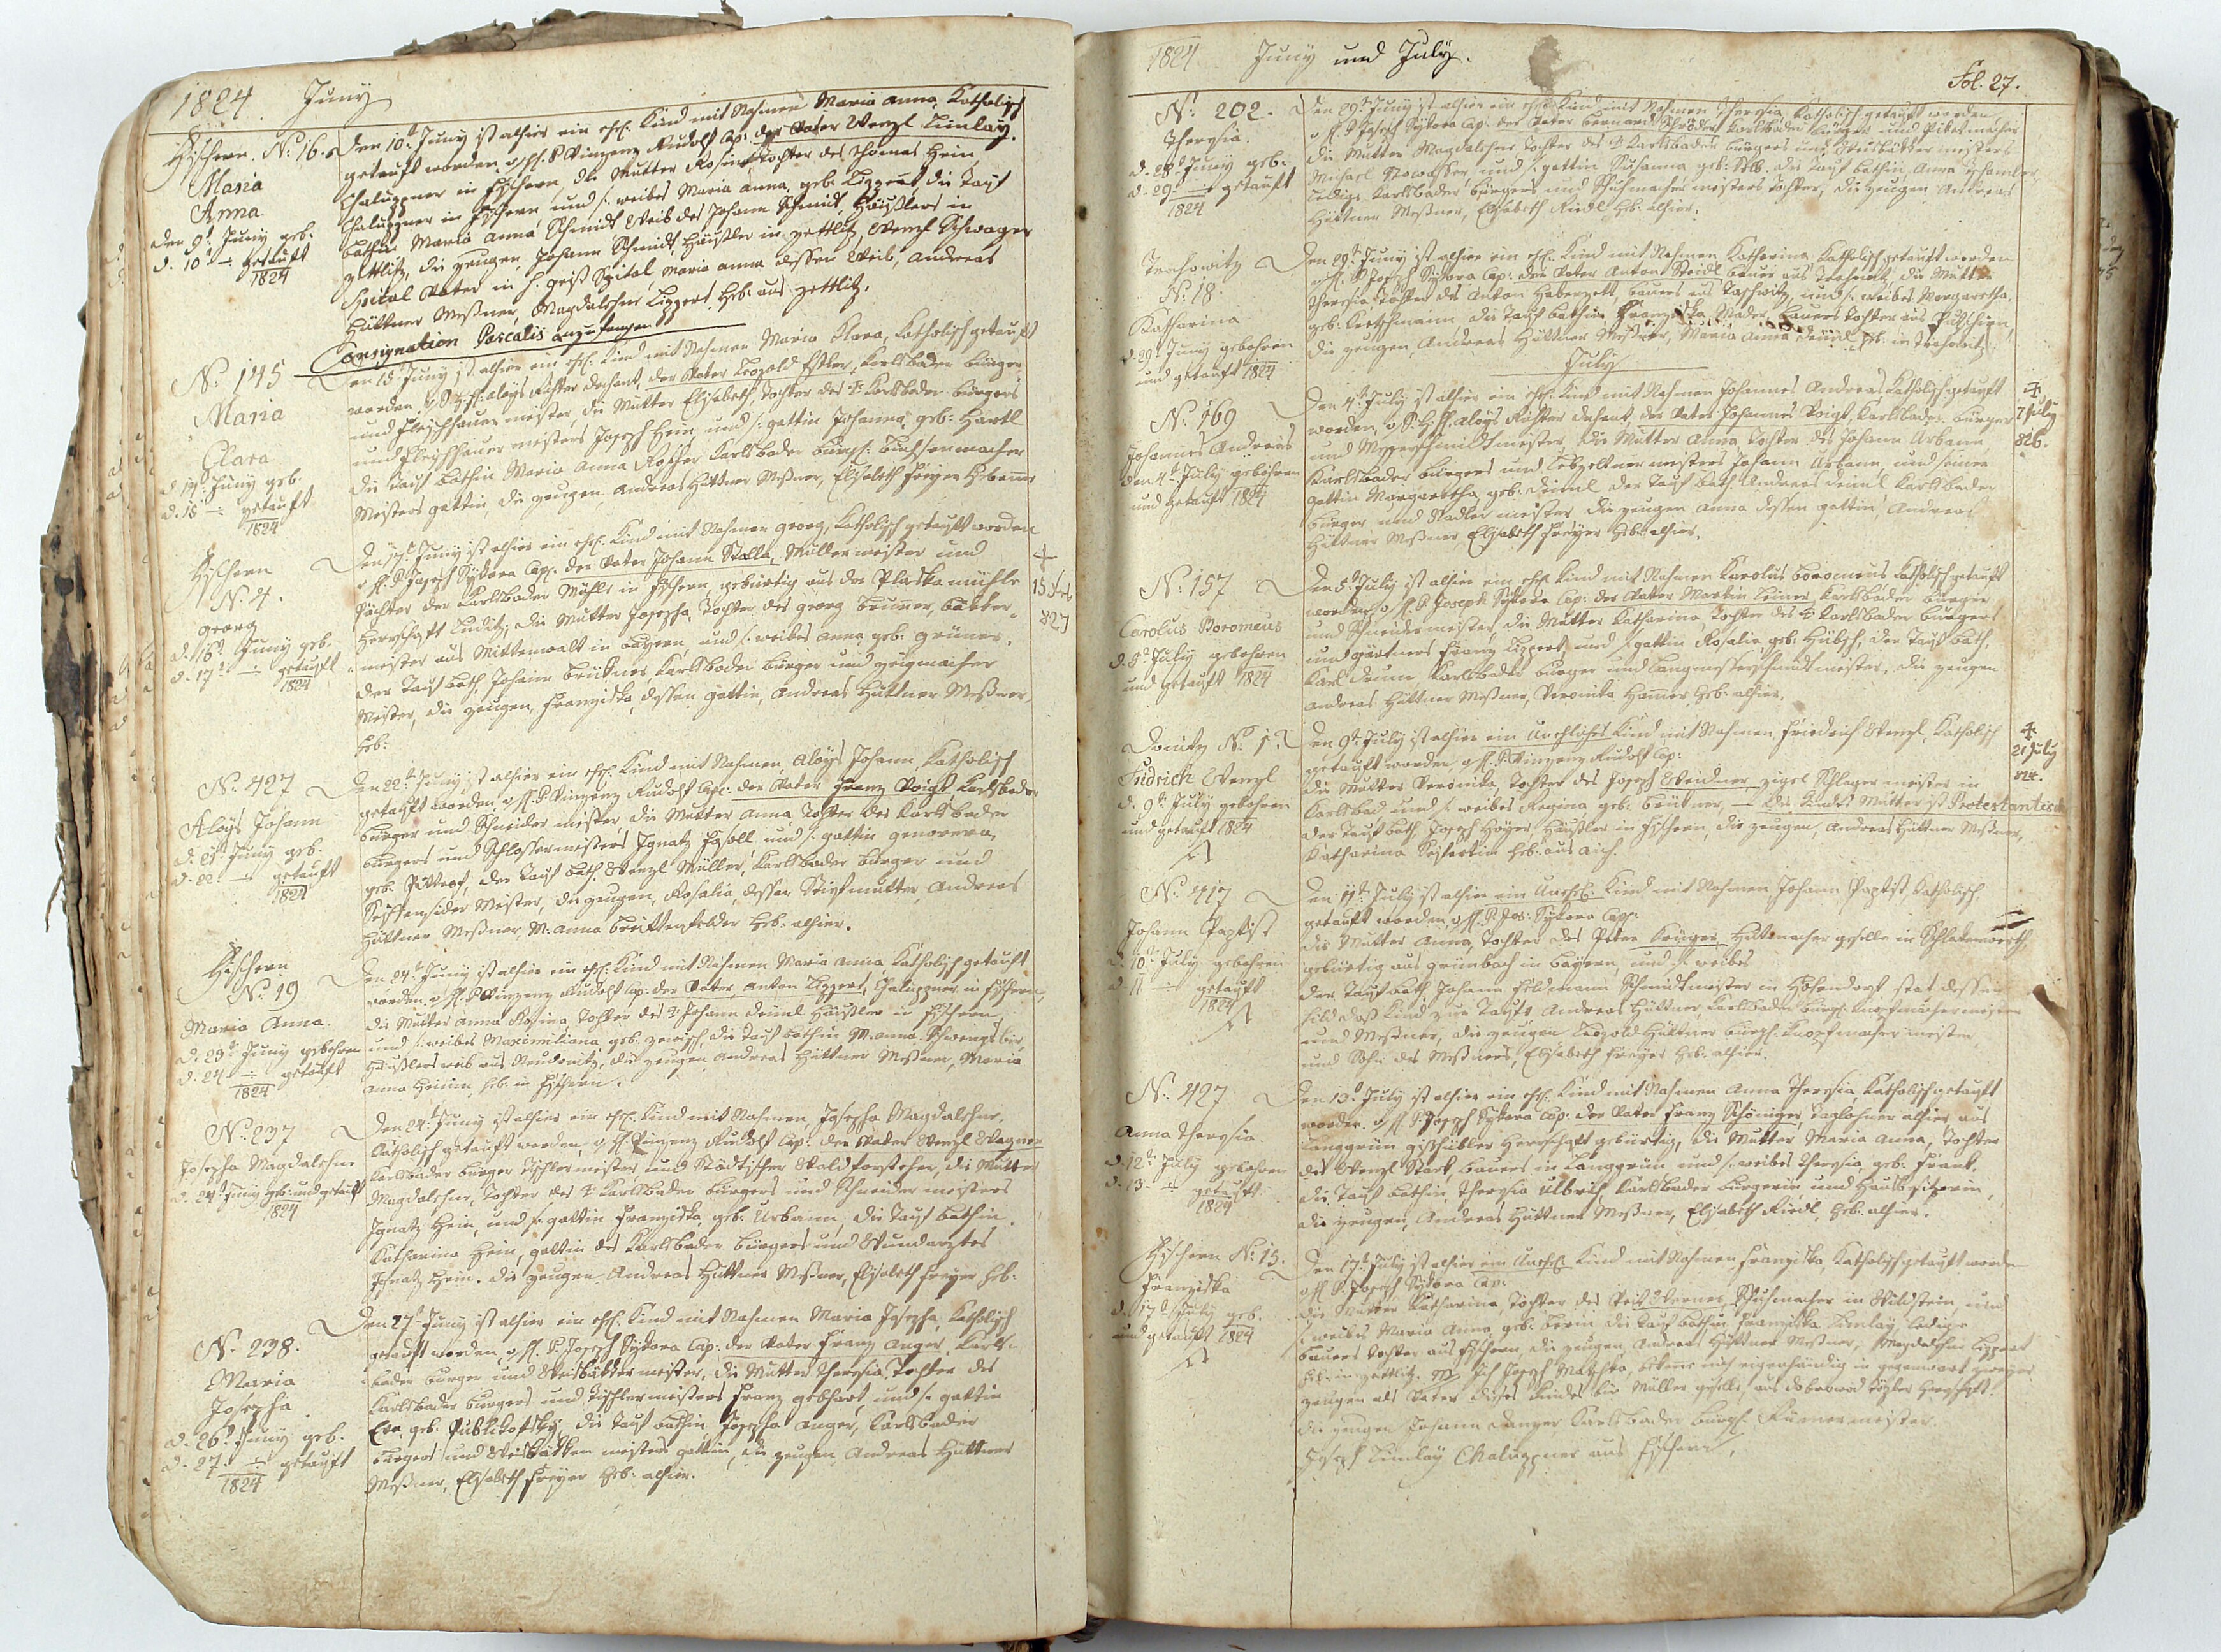 1824. Juny
Fischern. N: 16.
Maria
Anna
den 9t Juny geb.
d. 10t -:- getauft
1824
Den 10t Juny ist alhier ein ehl: Kind mit Nahmen Maria Anna, Katholisch
getauft worden, v H. P. Vinzenz Rudolf Cap: der Vater Wenzl Zimlay
Chaluppner in Fischern, die Mutter Rosina Tochter des Thomas Hein
Chaluppner in Fischern und s: weibes Maria Anna, geb: Lippert, die Tauf
bathin Maria Anna Schmidt Weib des Johann Schmidt Häußlers in
Zettlitz, die zeugen, Johann Schmidt, Häußler in Zettlitz, Schwager
Spital Vater in H. geist Spital, Maria Anna dessen Weib, Andreas
Hüttner Meßner, Magdalehne Lippert Heb: aus Zettlitz.
Consignation Pascalis anzufangen
N: 145
Maria
Clara
d. 14t Juny geb.
d. 15 -:- getauft
1824
Den 15t Juny ist alhier ein ehl: Kind mit Nahmen Maria Clara, Katholisch getauft
worden, v Aloys Richter Dechant, der Vater Leopold Karlsbader bürger
und Fleischhauer meister, die Mutter Elisabeth, Tochter des Karlsbader bürgers
und Fleischhauer meisters Joseph Hein und s: gattin Johanna, geb: Hartl
die Tauf bathin Maria Anna Karlsbader bürgl: büchsenmacher
Meisters gattin, die zeugen Andreas Hüttner Meßner, Elisabeth Freyer Hebamme
Fischern
N. 4.
Georg
d. 16t Juny geb.
d. 17t -:- getauft
1824
Den 17t Juny ist alhier ein ehl: Kind mit Nahmen Georg, Katholisch getauft worden
v H. P. Joseph Sykora Cap: der Vater Johann Stella, Müllermeister und
Pächter der Karlsbader Mühle in Fischern, gebürtig aus der Plaska mühle
Herrschaft Luditz, die Mutter Josepha, Tochter des Georg Brunner, Bäcker-
meister aus Mittenwalt in Bayern, und s: weibes Anna geb: Gruner.
der Tauf bath. Johann Brükner Karlsbader bürger und zeigmacher
Meister, die zeugen, Franziska, dessen gattin, Andreas Hüttner Meßner,
Heb:
+
827
N: 427
Aloys Johann
d. 21t Juny geb.
d. 22. -:- getauft
1824
Den 22t Juny ist alhier ein ehl: Kind mit Nahmen Aloys Johann Katholisch
getauft worden, v H. P. Vinzenz Rudolf Cap: der Vater Franz Voigt Karlsbader
bürger und Schneider meister die Mutter Anna Tochter des Karlsbader
bürgers und Schlossermeisters Ignatz und s: gattin Genovera
geb: der Tauf bath. Wenzl Müller, Karlsbader bürger und
Seiffensider Meister, die zeugen, Rosalia, dessen Stiefmutter, Andreas
Hüttner Meßner, M: Anna Breittenfelder Heb: alhier.
Fischern
N: 19
Maria Anna.
d. 23t Juny gebohren
d. 24 -:- getauft
1824
Den 24t Juny ist alhier ein ehl: Kind mit Nahmen Maria Anna Katholisch getauft
worden, v H. P. Vinzenz Rudolf Cap: der Vater, Anton Lippert, Chaluppner in Fischern,
die Mutter Anna Rosina, Tochter des Johann Deiml Häußler in Fischern
und s: weibes Maximiliana geb: die Tauf bathin M: Anna
Häußlers weib aus die zeugen Andreas Hüttner Meßner, Maria
Anna Heinin, Heb: in Fischern.
N: 237
Josepha Magdalehne
d. 24t Juny geb: und getauft
1824
Den 24t Juny ist alhier ein ehl: Kind mit Nahmen, Josepha Magdalehne,
Katholisch getauft worden, v H. Vinzenz Rudolf Cap: der Vater Wenzl Wagner
Karlsbader bürger Tischlermeister und Städtischer Waldvorsteher, die Mutter
Magdalehne, Tochter des Karlsbader bürgers und Schneider meisters
Ignatz Hein, und s: gattin Franziska, geb: Urbann, die Tauf bathin
Katharina Hein, gattin des Karlsbader bürgers und Wundarztes
Ignatz Hein. die zeugen Andreas Hüttner Meßner, Elisabeth Freyer Heb:
N. 238.
Maria
Josepha
d. 26t Juny geb.
d. 27. -:- getauft
1824
Den 27t Juny ist alhier ein ehl: Kind mit Nahmen Maria Josepha, Katholisch
getauft worden, v H. P. Joseph Sykora Cap: der Vater Franz Anger, Karls-
bader bürger und Weisbäcker meister, die Mutter Theresia, Tochter des
Karlsbader bürgers und Tischlermeisters Franz Gebhart, und s: gattin
Eva, geb: die Tauf bathin, Josepha Anger, Karlsbader
bürgers und Weisbäcken meisters gattin, die zeugen Andreas Hüttner
Meßner, Elisabeth Freyer Heb: alhier.
1824 Juny und July.
Fol. 27.
N: 202.
Theresia.
d. 28t Juny geb.
d. 29t -:- getauft
1824
Den 29t Juny ist alhier ein ehl: Kind mit Nahmen Theresia, Katholisch getauft worden,
v H. P. Joseph Sykora Cap: der Vater Bernard Schröder Karlsbader bürger und
die Mutter Magdalehne Tochter des Karlsbader bürgers und Weisbäcker meisters
Michael und s: gattin Susanna geb: die Tauf bathin, Anna
ledige Karlsbader bürgers und Schuhmacher meisters Tochter, die zeugen Andreas
Hüttner Meßner, Elisabeth Riedl Heb: alhier.
N: 18.
Katharina
d. 29t Juny gebohren
und getauft 1824
Den 29t Juny ist alhier ein ehl: Kind mit Nahmen Katharina Katholisch getauft worden
v H. P. Joseph Sykora Cap: der Vater Anton Steidl bauer aus die Mutter
Theresia Tochter des Anton Haberzett, bauers aus und s: weibes Margaretha,
geb: Kretschmann die Tauf bathin Franziska Mader, bauers Tochter aus
die zeugen, Andreas Hüttner Meßner, Maria Anna Deiml Heb: in
July
N: 169
Johannes Andreas
den 4t July gebohren
und getauft 1824
Den 4t July ist alhier ein ehl: Kind mit Nahmen Johannes Andreas, Katholisch getauft
worden, Aloys Richter Dechant, der Vater Johannes Voigt, Karlsbader bürger
und Messerschmidtmeister, die Mutter Anna Tochter des Johann Urbann
Karlsbader bürgers und Lebzeltnermeisters Johann Urbann, und seiner
gattin Margaretha, geb: Deiml der Tauf bath. Andreas Deiml Karlsbader
bürger und Nadler meister die zeugen Anna dessen gattin, Andreas
Hüttner Meßner Elisabeth Freyer Heb: alhier.
+
7 July
826.
N: 157
Carolus Boromeus
d. 5t July gebohren
und getauft 1824
Den 5t July ist alhier ein ehl: Kind mit Nahmen Karolus Boromeus Katholisch getauft
worden, v H. P. Joseph Sykora Cap: der Vatter Martin Karlsbader bürger
und Schneidermeister, die Mutter Katharina, Tochter des Karlsbader bürgers
und gärtners Franz Lippert, und s: gattin Rosalia, geb: Hübsch, der Tauf bath.
Karl Karlsbader bürger und Langmesserschmidtmeister, die zeugen
Andreas Hüttner Meßner, Veronika Hamer Heb: alhier.
Donitz N: 1.
Fridrich Wenzl
d. 9t July gebohren
und getauft 1824
Den 9t July ist alhier ein Unehliches Kind mit Nahmen Friedrich Wenzl, Katholisch
getauft worden, v H. P. Vinzenz Rudolf Cap:
die Mutter Veronika, Tochter des Joseph Weidner, zigel Schlager meister in
Karlsbad, und s: weibes Regina geb: Brükner, — die Kindes Mutter ist Protestantisch
der Tauf bath Joseph Höger, Häußler in Fischern, die zeugen, Andreas Hüttner Meßner,
Katharina Heb: aus Aich.
+
21 July
824.
N: 417
Johann Baptist
d. 10t July gebohren
d 11 -:- getauft
1824
Den 11t July ist alhier ein Unehl: Kind mit Nahmen Johann Baptist, Katholisch
getauft worden, v H. P. Jos: Sykora Cap:
die Mutter Anna, Tochter des Peter Krüger Hutmacher geselle in Schlakenwerth
gebürtig aus Grünbach in Bayern, und s: weibes
der Tauf bath Johann Feldmann Schmidtmeister in Hohendorf, stat dessen
hild daß Kind zur Taufe Andreas Hüttner, Karlsbader bürgl: Knopfmacher meister
und Meßner, die zeugen Leopold Hüttner bürgl: Knopfmacher meister
und Sohn des Meßners, Elisabeth Freyer Heb: alhier.
N: 427
Anna Theresia
d. 12t July gebohren
d. 13. -:- getauft
1824
Den 13t July ist alhier ein ehl: Kind mit Nahmen Anna Theresia, Katholisch getauft
worden. v H. P. Joseph Sykora Cap: der Vater Franz Schöniger, Taglohner alhier aus
Langgrün Gißhübler Herrschaft gebürtig, die Mutter Maria Anna, Tochter
des Wenzl Stark, bauers in Langgrün und s: weibes Theresia, geb: Frank.
die Tauf bathin, Theresia Ulbrich Karlsbader bürgerin und Hausbesitzerin,
die zeugen, Andreas Hüttner Meßner, Elisabeth Riedl, Heb: alhier.
Fischern N: 15.
Franziska
d. 17t July geb.
und getauft 1824
Den 17t July ist alhier ein Unehl: Kind mit Nahmen Franziska, Katholisch getauft worden
v H. P. Joseph Sykora Cap:
die Mutter Katharina, Tochter des Veit Werner Schuhmacher in Wildstein, und
s: weibes Maria Anna, geb: die Tauf bathin Franziska Zimlay, ledige
bauers Tochter aus Fischern, die zeugen, Andreas Hüttner Meßner, Magdalehne Lippert
Heb: in Zettlitz. Ich Joseph bekene mich eigenhändig in gegenwart zweyer
zeugen als Vater dieses Kindes bin Müller geselle, aus Herrschaft.
die zeugen Johann Karlsbader bürgl: Riemermeister.
Joseph Zimlay Chaluppner aus Fischern.